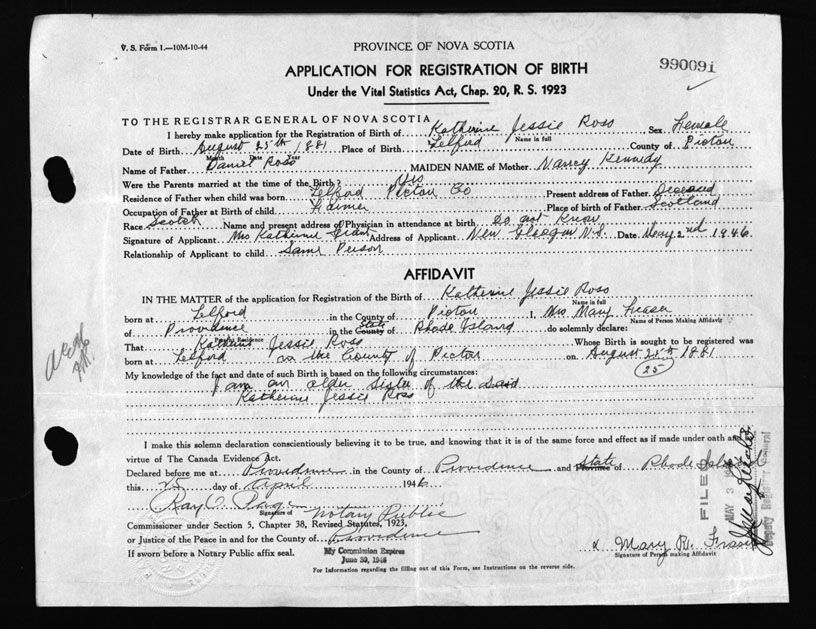 V. S. Form 1.—10M-10-44
PROVINCE OF NOVA SCOTIA
990091
APPLICATION FOR REGISTRATION OF BIRTH
Under the Vital Statistics Act, Chap. 20, R. S. 1923
TO THE REGISTRAR GENERAL OF NOVA SCOTIA
I hereby make application for the Registration of Birth of Katherine Jessie Ross Sex Female
Name in full
Date of Birth August 25th 1881 Place of Birth Telford County of Pictou
Month Date Year
Name of Father Daniel Ross MAIDEN NAME of Mother Nancy Kennedy
Were the Parents married at the time of the Birth? Yes
Residence of Father when child was born Telford Pictou Co Present address of Father Deceased
Occupation of Father at Birth of child Farmer Place of birth of Father Scotland
Race Scotch Name and present address of Physician in attendance at birth Do not Know
Signature of Applicant Mrs Katherine Grant Address of Applicant New Glasgow N.S. Date May 2nd 1946
Relationship of Applicant to child Same Person
AFFIDAVIT
IN THE MATTER of the application for Registration of the Birth of Katherine Jessie Ross
Name in full
born at Telford in the County of Pictou I, Mrs Mary Fraser
Name of Person Making Affidavit
of Providence in the County State of Rhode Island do solemnly declare:
Residence
That Katherine Jessie Ross Whose Birth is sought to be registered was
born at Telford in the County of Pictou on August 25th 1881
25
My knowledge of the fact and date of such Birth is based on the following circumstances:
I am an older sister of the said
Katherine Jessie Ross
I make this solemn declaration conscientiously believing it to be true, and knowing that it is of the same force and effect as if made under oath and
virtue of The Canada Evidence Act.
Declared before me at Providence in the County of Providence and State Province of Rhode Island
this 25 day of April 1946
Ray
Signature of Notary Public
Commissioner under Section 5, Chapter 38, Revised Statutes, 1923,
or Justice of the Peace in and for the County of Providence
If sworn before a Notary Public affix seal.
My Commission Expires
June 30, 1946
x Mary R. Fraser
Signature of Person making Affidavit
For Information regarding the filling out of this Form, see Instructions on the reverse side.
FILED
MAY 3
Deputy Registrar General